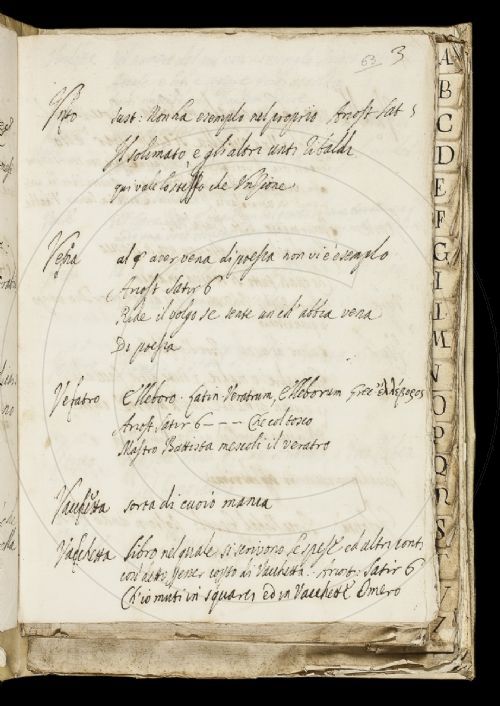 63 3
Unto sust: Non ha esempio nel proprio Ariost Sat 5
Il solimato, e gli altri unti ribaldi
qui vale lo stesso che Unzione
Vena al § aver vena di poesia non vi è esempio
Ariost Satir 6
Rade il volgo se sente un ch'abbia vena
Di poesia
Veratro Elleboro. Latin Veratrum, Elleborum Grec ἑλλέβορος
Ariost Satir 6 - - - - Che col tosco
Mastro Battista mescoli il veratro
Vacchetta sorta di cuoio manca
Vacchetta Libro nel quale si scrivono le spese ed altri conti
così detto, coperto di Vacchetta. Ariost: Satir 6
Ch'io muti in squarci ed in Vacchette Omero
A
B
C
D
E
F
G
I
L
M
N
O
P
Q
R
S
T
V
Z